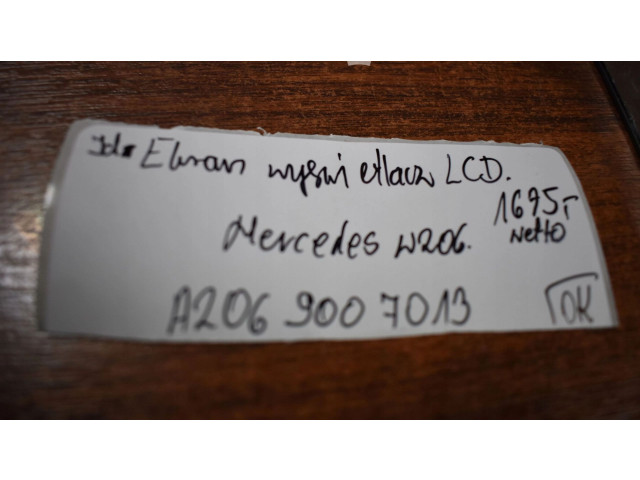 Ekran wyświetlacz LCD.
1675,-
netto
Mercedes W206.
A206 900 7013
OK